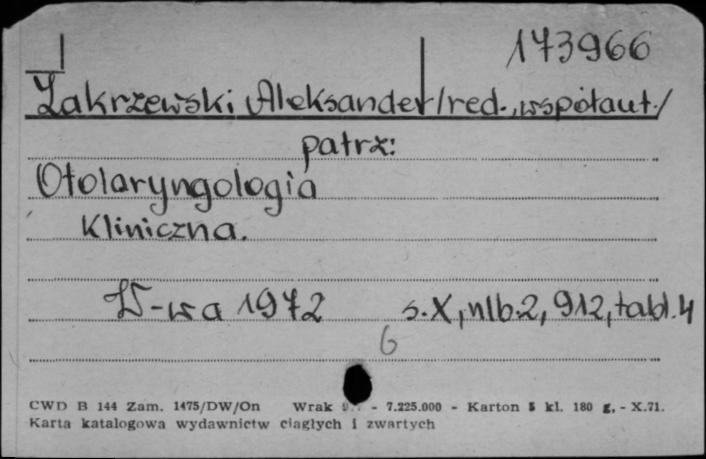 173966
Zakrzewski Aleksander /red., współaut./
patrz:
Otolaryngologia
Kliniczna.
W-wa 1972 s. X, nlb. 2, 912, tabl. 4
6
CWD B 144 Zam. 1475/DW/On Wrak - 7.225.000 - Karton 5 kl. 180 g. - X.71.
Karta katalogowa wydawnictw ciągłych i zwartych